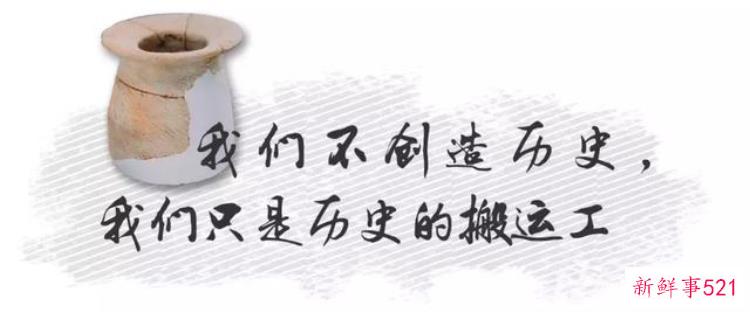 我们不创造历史，
我们只是历史的搬运工
新鲜事521